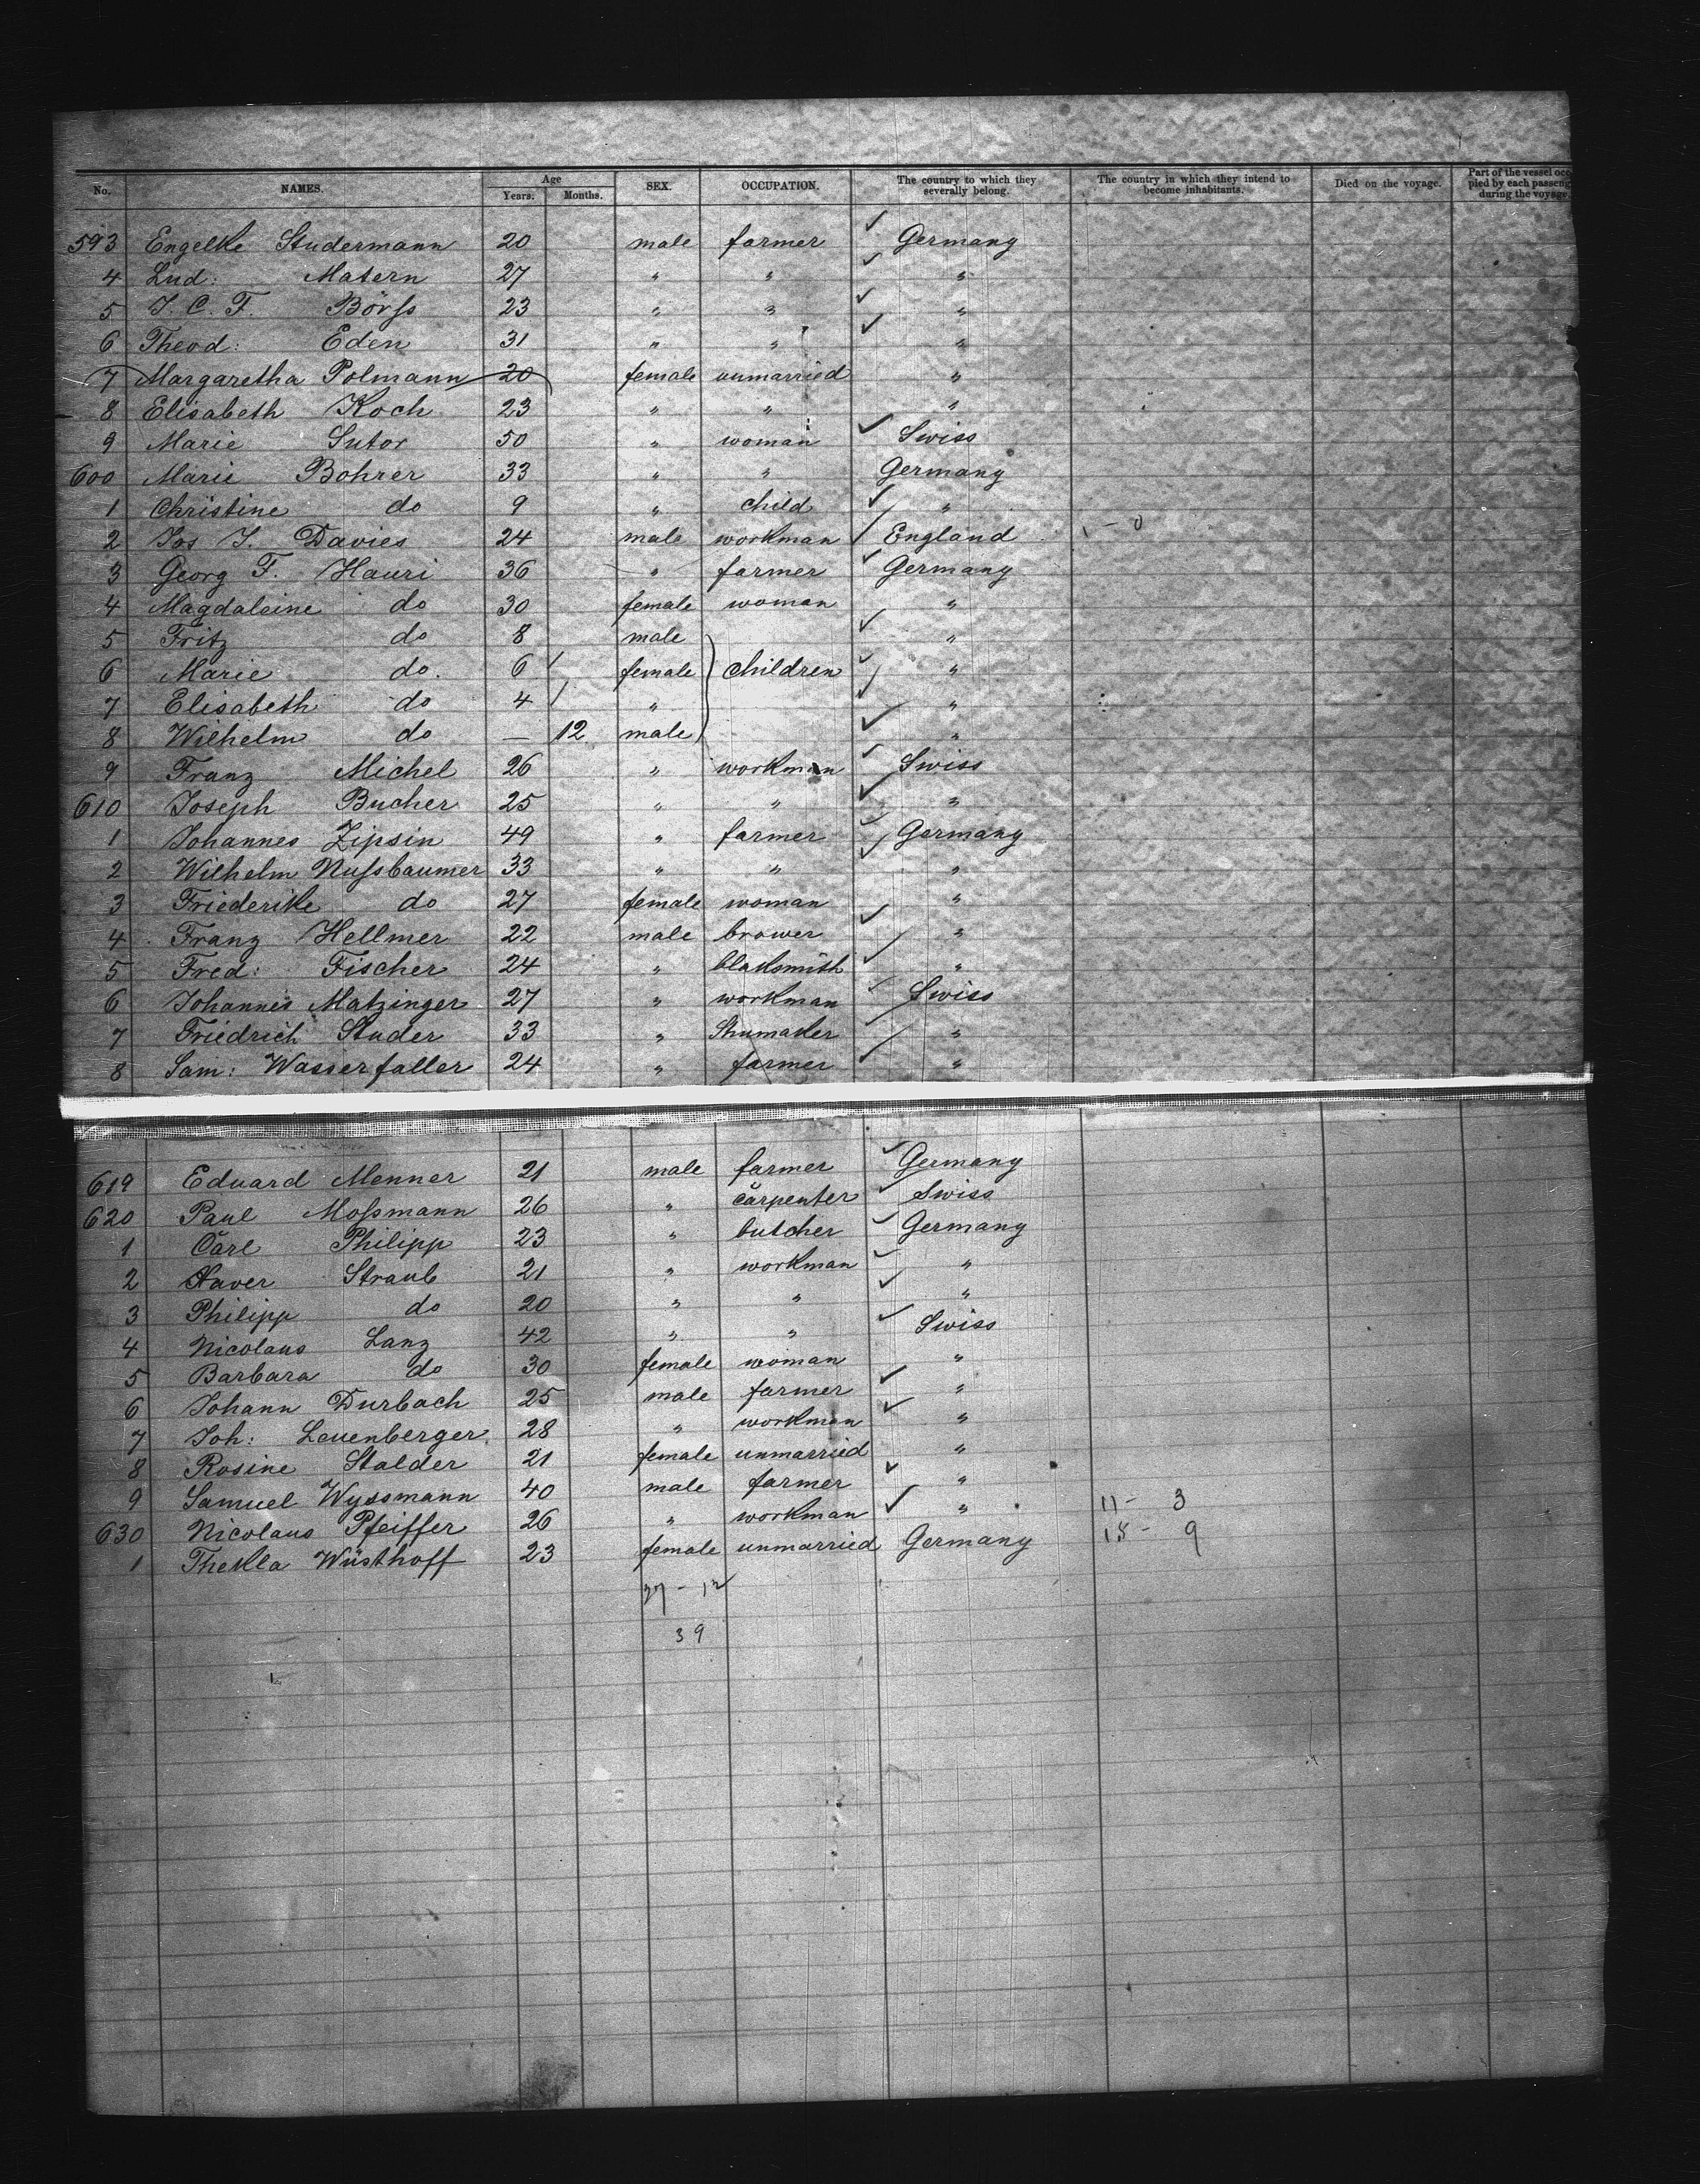 No. NAMES. Age Years. Months. SEX. OCCUPATION. The country to which they severally belong. The country in which they intend to become inhabitants. Died on the voyage. Part of the vessel occu pied by each passeng during the voyage
593 Engelke Studermann 20 male farmer ✓ Germany
4 Lud: Matern 27 " " ✓ "
5 J. C. F. Börſs 23 " " ✓ "
6 Theod: Eden 31 " " ✓ "
7 Margaretha Polmann 20 female unmarried "
8 Elisabeth Koch 23 " " "
9 Marie Sutor 50 " woman ✓ Swiss
600 Marie Bohrer 33 " " Germany
1 Christine do 9 " child ✓ "
2 Jos J. Davies 24 male workman / England 1 - 0
3 Georg F. Hauri 36 " farmer ✓ Germany
4 Magdaleine do 30 female woman "
5 Fritz do 8 male ✓ "
6 Marie do. 6 / female children ✓ "
7 Elisabeth do 4 / " ✓ "
8 Wilhelm do — 12 male ✓ "
9 Franz Michel 26 " workman ✓ Swiss
610 Joseph Bucher 25 " " ✓ "
1 Johannes Zipsin 49 " farmer ✓ Germany
2 Wilhelm Nuſsbaumer 33 " " ✓ "
3 Friederike do 27 female woman "
4 Franz Hellmer 22 male brower ✓ "
5 Fred: Fischer 24 " blaksmith ✓ "
6 Johannes Matzinger 27 " workman ✓ Swiss
7 Friedrich Studer 33 " Shumaker / "
8 Sam: Wasserfaller 24 " farmer ✓ "
619 Eduard Menner 21 male farmer ✓ Germany
620 Paul Moſsmann 26 " carpenter ✓ Swiss
1 Carl Philipp 23 " butcher ✓ Germany
2 Xaver Straub 21 " workman ✓ "
3 Philipp do 20 " " ✓ "
4 Nicolaus Lanz 42 " " ✓ Swiss
5 Barbara do 30 female woman "
6 Johann Durbach 25 male farmer ✓ "
7 Joh: Leuenberger 28 " workman ✓ "
8 Rosine Stalder 21 female unmarried "
9 Samuel Wyssmann 40 male farmer ✓ "
630 Nicolaus Pfeiffer 26 " workman ✓ " 11 - 3
1 Thekla Wüsthoff 23 female unmarried Germany 15 - 9
27 - 12
39